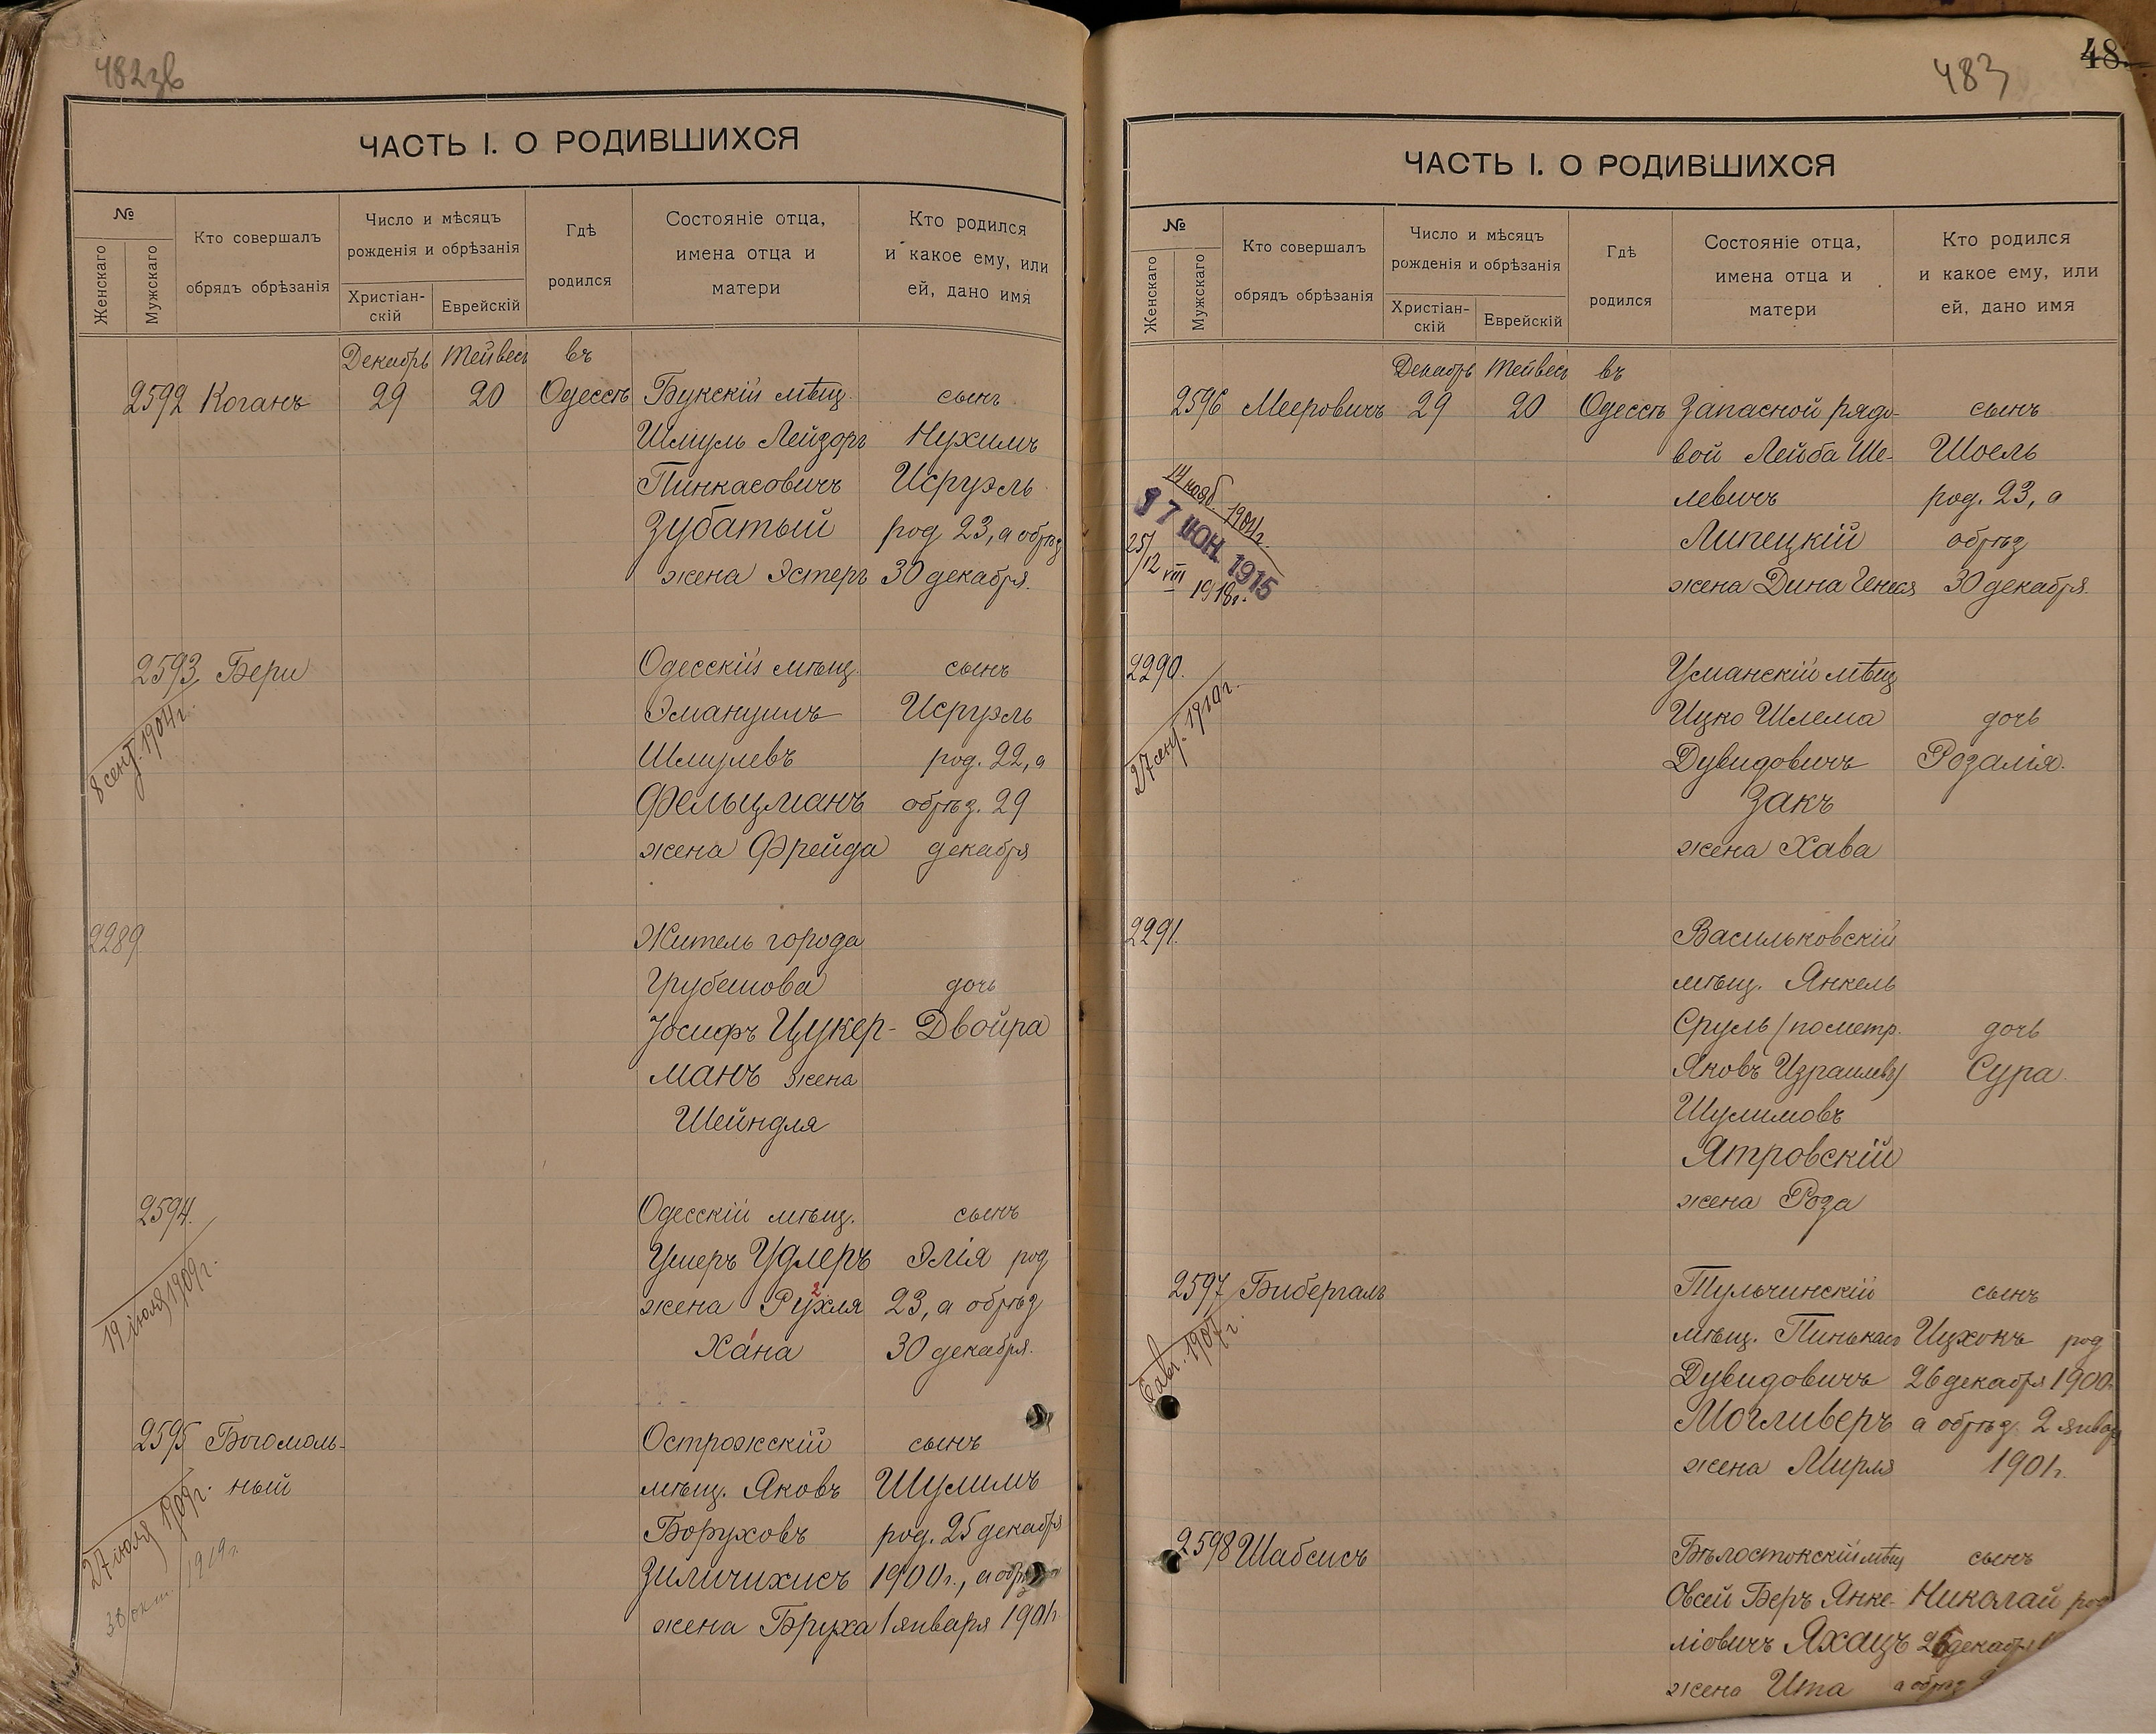 482зв
ЧАСТЬ I. О РОДИВШИХСЯ
№
Женскаго
Мужскаго
Кто совершалъ
обрядъ обрѣзанія
Число и мѣсяцъ
рожденія и обрѣзанія
Христіан-
скій
Еврейскій
Гдѣ
родился
Состояніе отца,
имена отца и
матери
Кто родился
и какое ему, или
ей, дано имя
Декабрь Тейвесъ въ
2592 Коганъ 29 20 Одессѣ Букскій мѣщ. сынъ
Шмуль Лейзоръ Нухимъ
Пинкасовичъ Исруэль
Зубатый род 23, а обрѣз
жена Эстеръ 30 декабря.
2593 Бери Одесскій мѣщ. сынъ
8 сент. 1904 г.
Эмануилъ Исруэль
Шмулевъ род. 22, а
Фельцманъ обрѣз. 29
жена Фрейда декабря
2289 Житель города
Грубешова дочь
Іосифъ Цукер- Двойра
манъ жена
Шейндля
2594. Одесскій мѣщ. сынъ
Ушеръ Удлеръ Элія род
19 іюля 1909 г.
жена Рухля 23, а обрѣз
2
Хана 30 декабря.
2595 Богомоль- Острожскій сынъ
ный мѣщ. Яковъ Шулимъ
27 іюля 1909 г.
30 окт. 1919 г.
Боруховъ род. 25 декабря
Зиличихисъ 1900 г., а обрѣз
жена Бруха 1 января 1901 г.
483
48
ЧАСТЬ I. О РОДИВШИХСЯ
№
Женскаго
Мужскаго
Кто совершалъ
обрядъ обрѣзанія
Число и мѣсяцъ
рожденія и обрѣзанія
Христіан-
скій
Еврейскій
Гдѣ
родился
Состояніе отца,
имена отца и
матери
Кто родился
и какое ему, или
ей, дано имя
Декабрь Тейвесъ въ
2596 Мееровичъ 29 20 Одессѣ Запасной рядо- сынъ
вой Лейба Ше- Шоель
14 нояб. 1904 г.
левичъ род. 23, а
17 ІЮН. 1915
Липецкій обрѣз
25/12 VIII 1918 г.
жена Дина Генеся 30 декабря.
2290. Уманскій мѣщ
27 сент. 1910 г.
Ицко Шлема дочь
Дувидовичъ Розалія.
Закъ
жена Хава
2291. Васильковскій
мѣщ. Янкель
Сруль (по метр. дочь
Яковъ Израилевъ) Сура.
Шулимовъ
Ятровскій
жена Роза
2597 Бибергалъ Тульчинскій сынъ
мѣщ. Пинькасъ Ицхокъ род
1907 г.
Дувидовичъ 26 декабря 1900 г.
Могливеръ а обрѣз. 2 январ
жена Мирля 1901 г.
2598 Шабсисъ Бѣлостокскій мѣщ сынъ
Овсей Беръ Янке- Николай род
ліовичъ Яхацъ 26 декабр
жена Ита а обрѣз 2